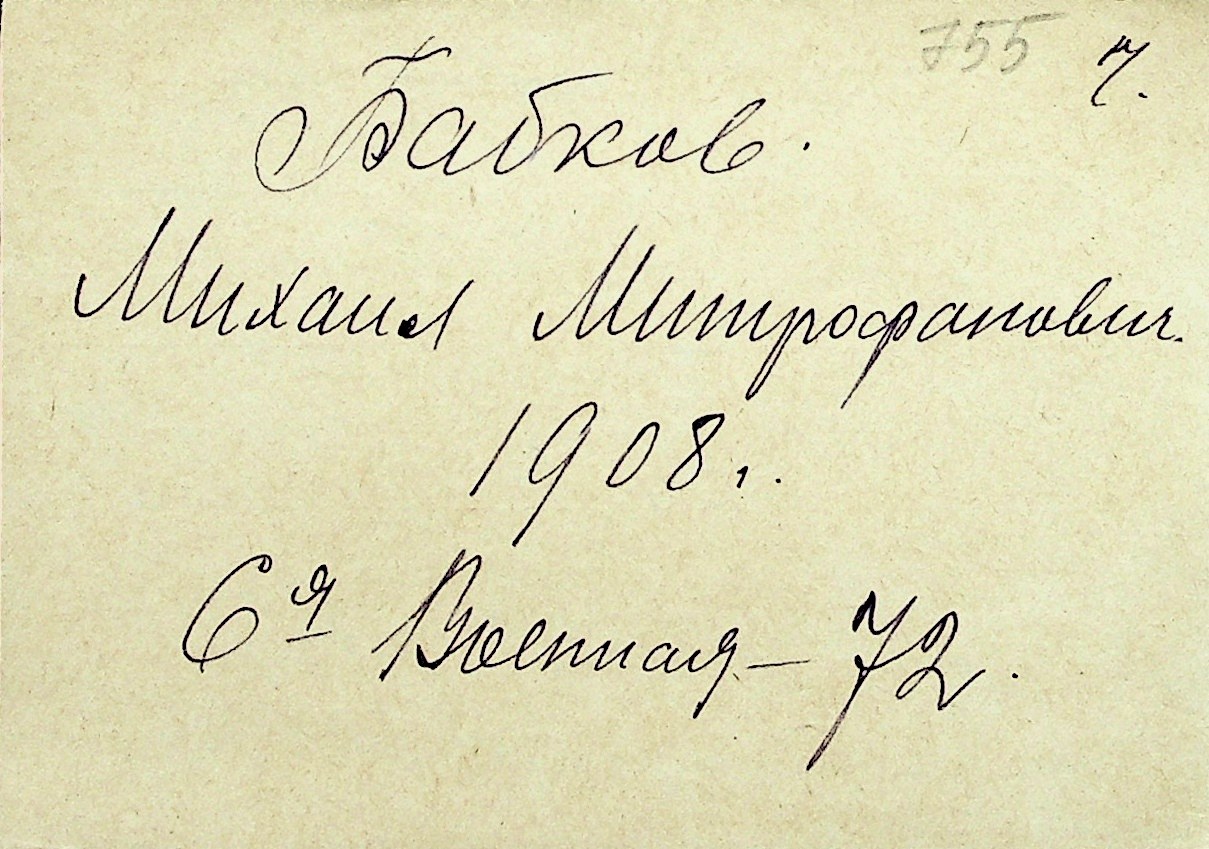 755 7.
Бабков.
Михаил Митрофанович.
1908г.
6я Военная - 72.